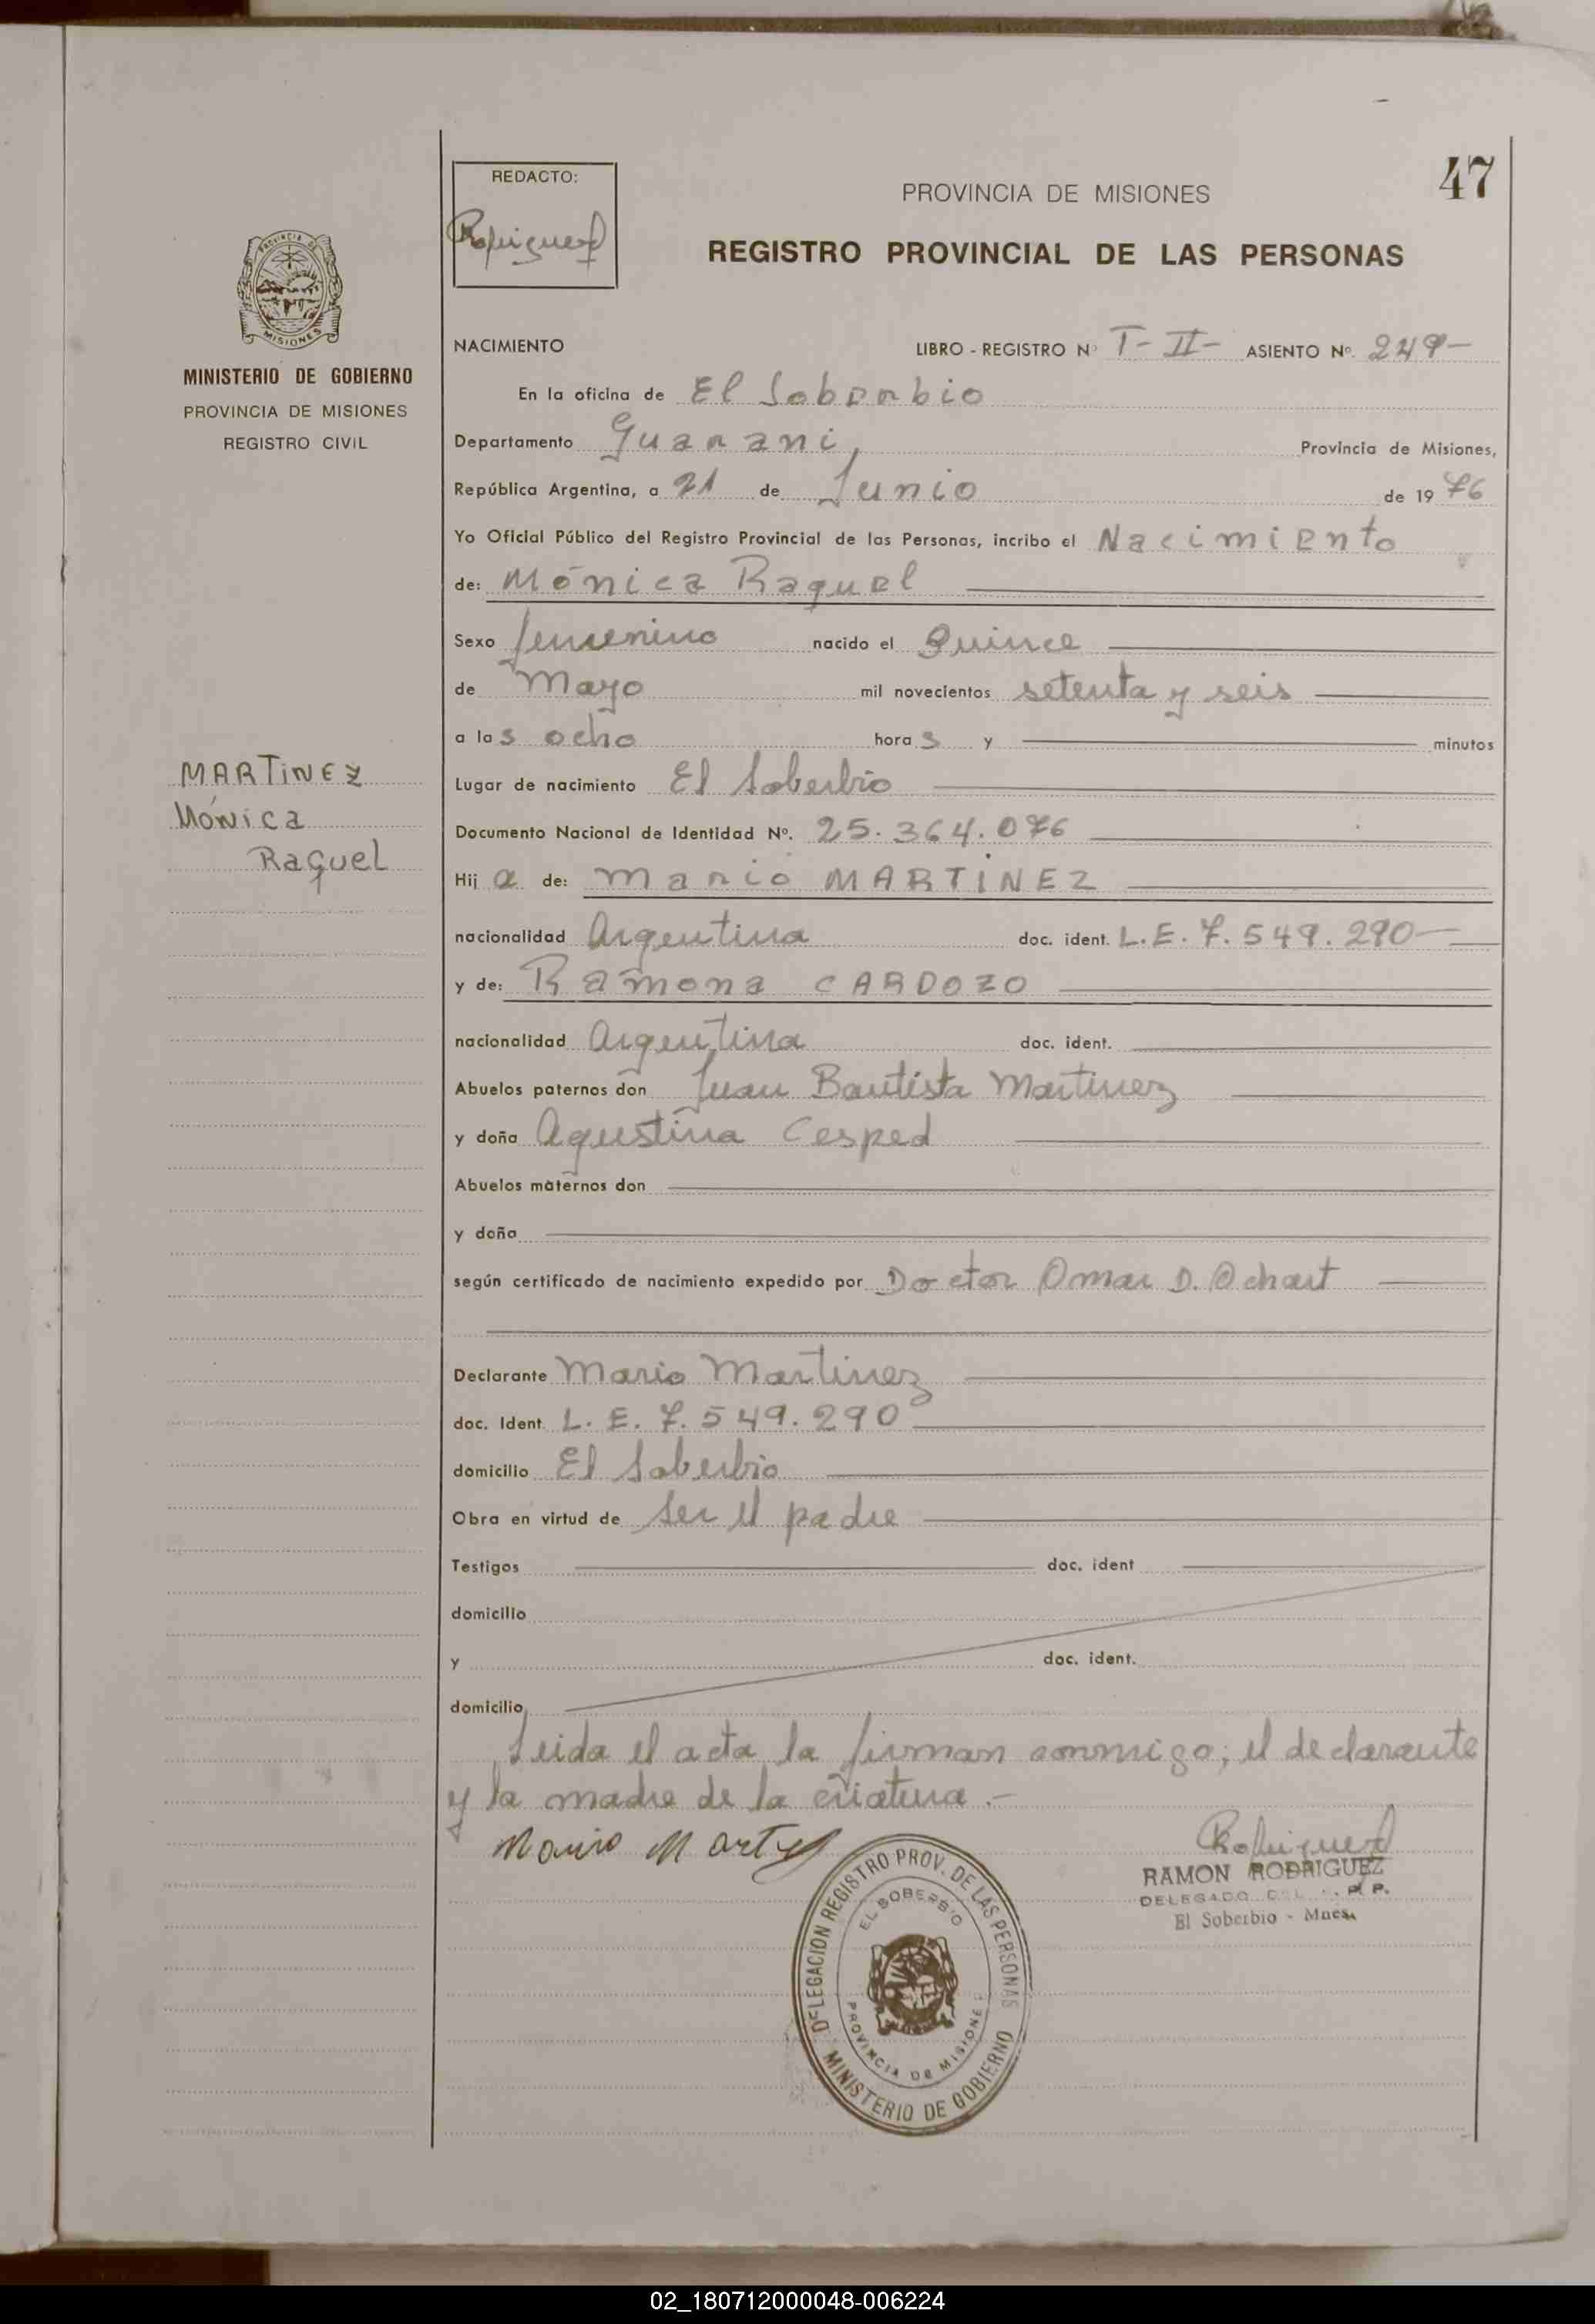 47
REDACTO:
Rodriguez
PROVINCIA DE MISIONES
REGISTRO PROVINCIAL DE LAS PERSONAS
PROVINCIA DE
MISIONES
MINISTERIO DE GOBIERNO
PROVINCIA DE MISIONES
REGISTRO CIVIL
MARTINEZ
Mónica
Raquel
NACIMIENTO LIBRO - REGISTRO Nº T-II- ASIENTO Nº. 249-
En la oficina de El Soberbio
Departamento Guarani, Provincia de Misiones,
República Argentina, a 21 de Junio de 19 76
Yo Oficial Público del Registro Provincial de las Personas, incribo el Nacimiento
de: Mónica Raquel
Sexo femenino nacido el Quince
de Mayo mil novecientos setenta y seis
a las ocho horas y minutos
Lugar de nacimiento El Soberbio
Documento Nacional de Identidad Nº. 25.364.076
Hija de: Mario MARTINEZ
nacionalidad Argentina doc. ident. L.E. 7.549.290
y de: Ramona CARDOZO
nacionalidad Argentina doc. ident.
Abuelos paternos don Juan Bautista Martinez
y doña Agustina Cesped
Abuelos maternos don
y doña
según certificado de nacimiento expedido por Doctor Omar D. Ochart
Declarante Mario Martinez
doc. Ident. L. E. 7.549.290
domicilio El Soberbio
Obra en virtud de ser el padre
Testigos doc. ident
domicilio
y doc. ident.
domicilio
Leida el acta la firman conmigo; el declarante
y la madre de la criatura.-
Mario Martinez
Rodriguez
RAMON RODRIGUEZ
DELEGADO DEL R. P. P.
El Soberbio - Mnes.
DELEGACION REGISTRO PROV. DE LAS PERSONAS
EL SOBERBIO
PROVINCIA DE MISIONES
MINISTERIO DE GOBIERNO
02_180712000048-006224